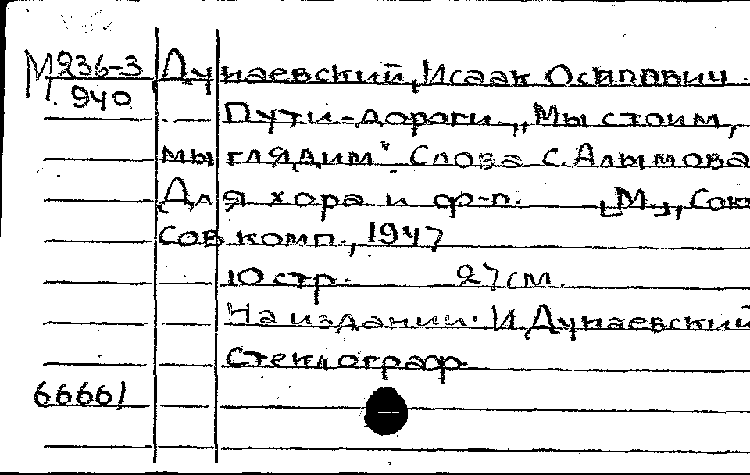 М 236-3 Дунаевский, Исаак Осипович.
940
Пути-дороги „Мы стоим,
мы глядим" Слова С. Алымова
Для хора и ф-п. [М.], Сою
Сов комп., 1947
10 стр. 27 см.
На издании: И. Дунаевский
Стеклограф.
66661